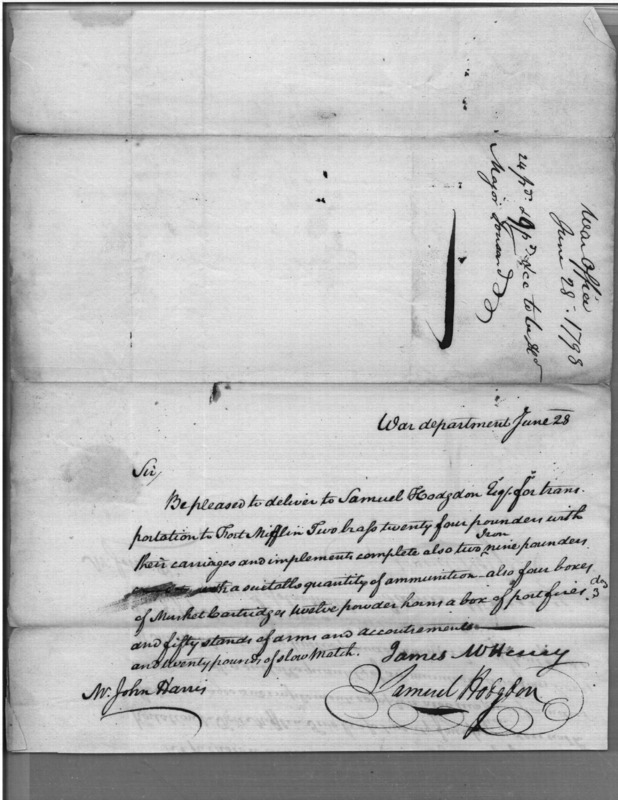 War Office
June 28. 1798
24 pr. & 9 pr. &ce to be
Major
War department June 28
Sir,
Be pleased to deliver to Samuel Hodgdon Esqr. for trans-
portation to Fort Mifflin Two brass twenty four pounders with
their carriages and implements complete also two Iron nine pounders
with a suitable quantity of ammunition also four boxes
of Musket Cartridges twelve powder horns a box of portfires 3 doz
and fifty stands of arms and accoutrements
and twenty pounds of slow match.
James McHenry
Mr. John Harris
Samuel Hodgdon